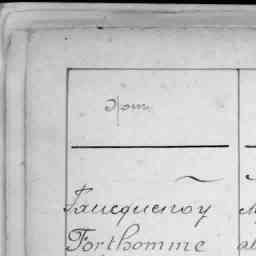 Nom
Fauequenoy
Forthomme